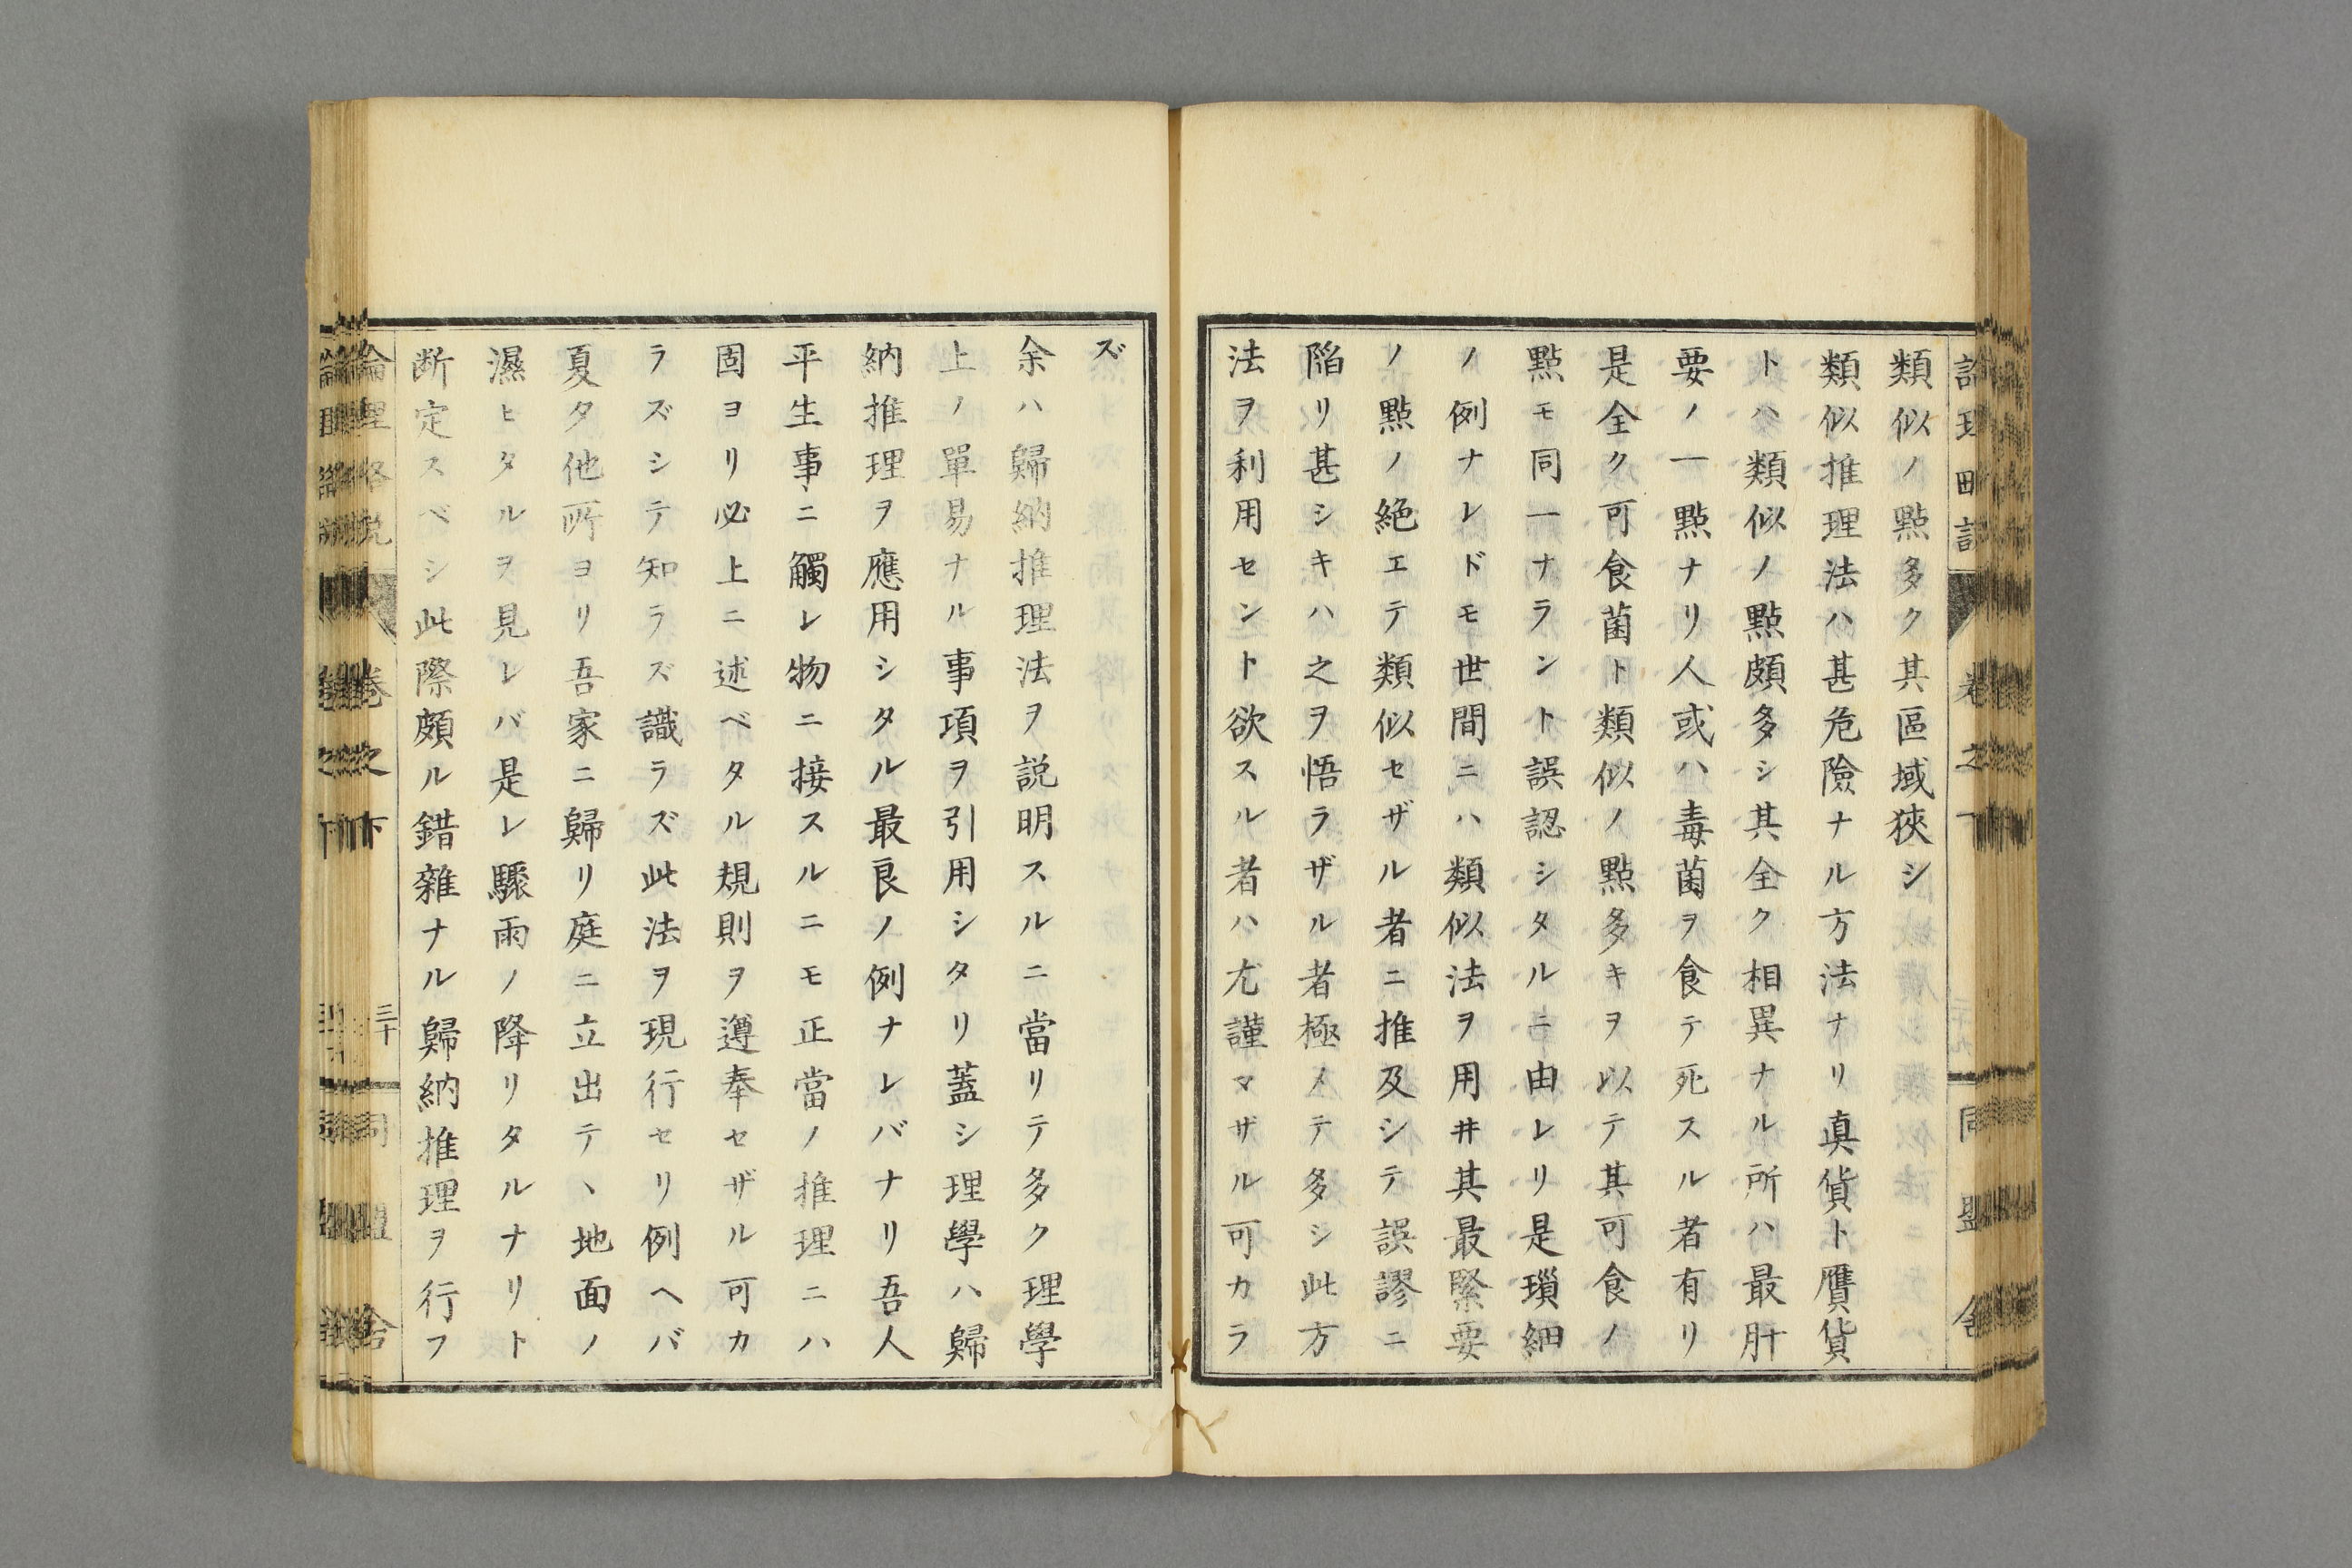 類似ノ點多ク其區域狹シ
類似推理法ハ甚危險ナル方法ナリ真貨ト贋貨
トハ類似ノ點頗多シ其全ク相異ナル所ハ最肝
要ノ一點ナリ人或ハ毒菌ヲ食テ死スル者有リ
是全ク可食菌ト類似ノ點多キヲ以テ其可食ノ
點モ同一ナラント誤認シタルニ由レリ是瑣細
ノ例ナレドモ世間ニハ類似法ヲ用井其最緊要
ノ點ノ絶エテ類似セザル者ニ推及シテ誤謬ニ
陷リ甚シキハ之ヲ悟ラザル者極メテ多シ此方
法ヲ利用セント欲スル者ハ尤謹マザル可カラ
ズ
余ハ歸納推理法ヲ説明スルニ當リテ多ク理學
上ノ單易ナル事項ヲ引用シタリ蓋シ理學ハ歸
納推理ヲ應用シタル最良ノ例ナレバナリ吾人
平生事ニ觸レ物ニ接スルニモ正當ノ推理ニハ
固ヨリ必上ニ述ベタル規則ヲ遵奉セザル可カ
ラズシテ知ラズ識ラズ此法ヲ現行セリ例ヘバ
夏タ他所ヨリ吾家ニ歸リ庭ニ立出テヽ地面ノ
濕ヒタルヲ見レバ是レ驟雨ノ降リタルナリト
断定スベシ此際頗ル錯雜ナル歸納推理ヲ行フ
卷之下
三十